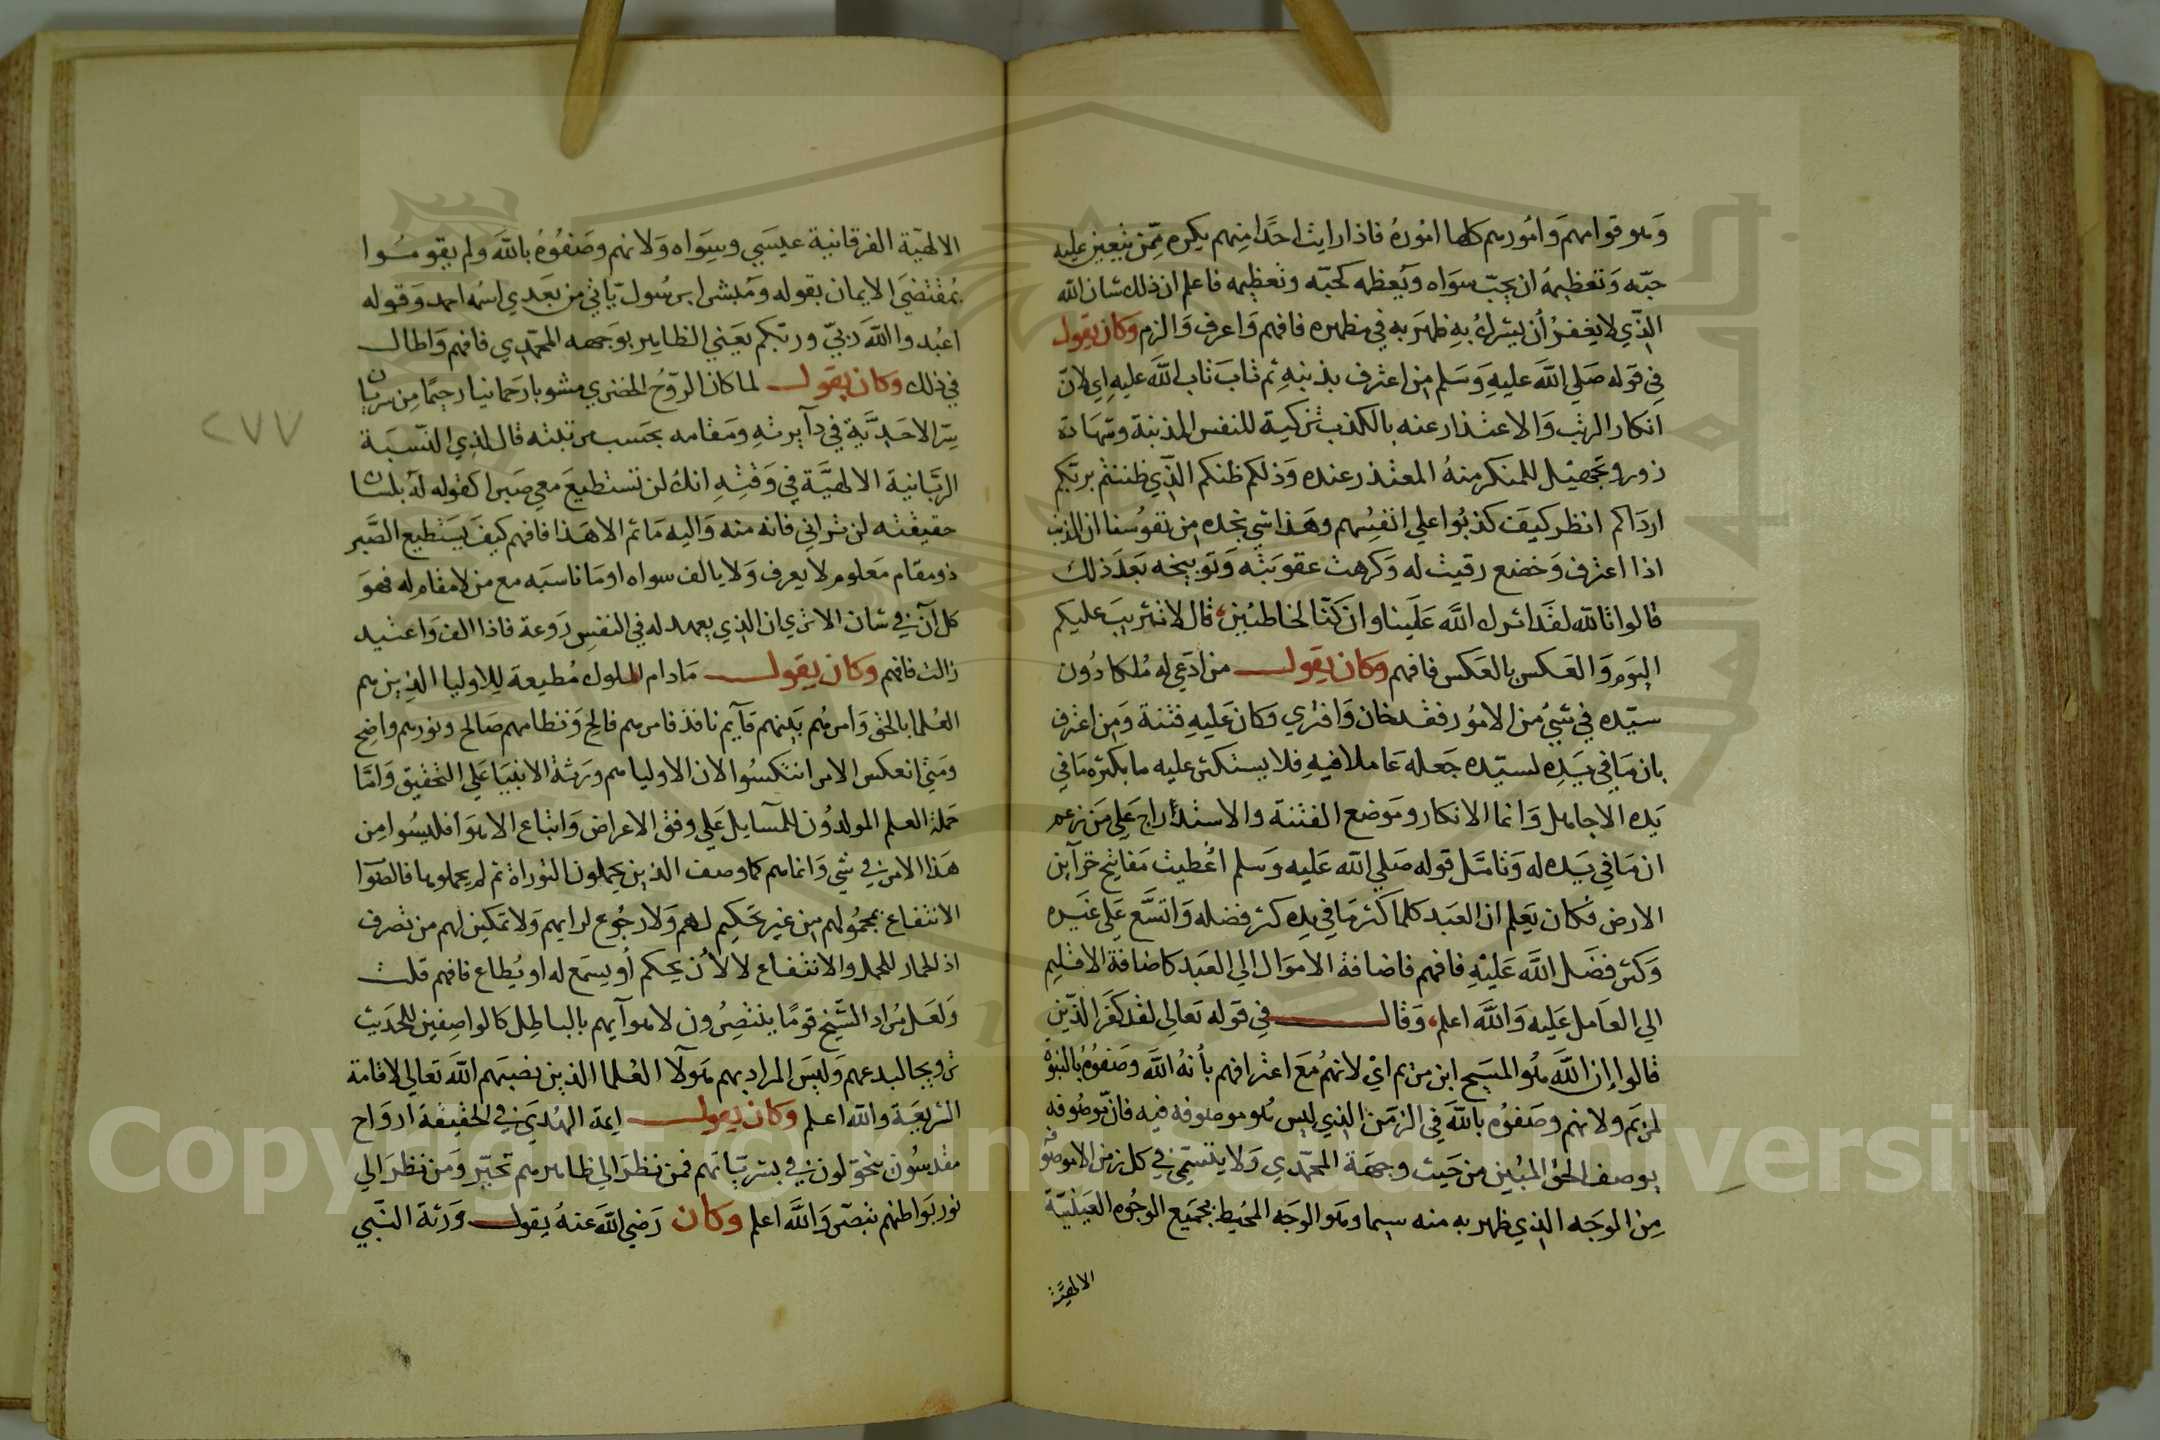 وهو قوامهم وامورهم كلها اموره فاذا رايت احدا منهم يكره ممن يتعين عليه
حبه وتعظيمه ان يحب سواه ويعظمه كحبه وتعظيمه فاعلم ان ذلك شان الله
الذي لا يغفر أن يشرك به ظهر به في مظهره فافهم واعرف والزم وكان يقول
في قوله صلي الله عليه وسلم من اعترف بذنبه ثم تاب تاب الله عليه اي لان
انكار الذنب والاعتذار عنه بالكذب تزكية للنفس المذنبة وشهادة
زور وتجهيل للمنكر منه المعتذر عنده وذلكم ظنكم الذي ظننتم بربكم
ارداكم انظر كيف كذبوا علي انفسهم وهذا شي نجده من نفوسنا ان المذنب
اذا اعترف وخضع رقيت له وكرهت عقوبته وتوبيخه بعد ذلك
قالوا تالله لقد اثرك الله علينا وان كنا لخاطئين قال لا تثريب عليكم
اليوم والعكس بالعكس فافهم وكان يقول من ادعي له ملكا دون
سيده في شئ من الامور فقد خان وافتري وكان عليه فتنة ومن اعترف
بان ما في يده لسيده جعله عاملا فيه فلا يستكثر عليه ما يكثره ما في
يده الا جاهل وانما الانكار وموضع الفتنة والاستدراج علي من زعم
ان ما في يده له وتامل قوله صلي الله عليه وسلم اعطيت مفاتيح خزآين
الارض فكان يعلم ان العبد كلما كثر ما في يده كثر فضله واتسع علي غيره
وكثر فضل الله عليه فافهم فاضافة الاموال الي العبد كاضافة الاقليم
الي العامل عليه والله اعلم وقال في قوله تعالي لقد كفر الذين
قالوا إن الله هو المسيح ابن مريم اي لانهم مع اعترافهم بأنه الله وصفوه بالنبوة
لمريم ولانهم وصفوه بالله في الزمن الذي ليس هو موصوفه فيه فان موصوفه
بوصف الحق المبين من حيث وجهة المحمدي ولا يتسمي في كل زمن الا موصوف
من الوجه الذي ظهر به منه سيما وهو الوجه المحيط بجميع الوجوه العينية
الالهية
الالهية الفرقانية عيسي وسواه ولانهم وصفوه بالله ولم يقوموا
بمقتضي الايمان بقوله ومبشرا برسول ياتي من بعدي اسمه احمد وقوله
اعبدوا الله ربي وربكم يعني الظاهر بوجهه المحمدي فافهم واطال
في ذلك وكان يقول لما كان الروح الخضري مشوبا رحمانيا رحيما من سريان
سر الاحدية في دآيرته ومقامه بحسب مرتبته قال لذي النسبة
الربانية الالهية في وقته انك لن تستطيع معي صبرا كقوله له بلسان
حقيقته لن تراني فانه منه واليه ما ثم الا هذا فافهم كيف يستطيع الصبر
ذو مقام معلوم لا يعرف ولا يالف سواه او ما ناسبه مع من لا مقام له فهو
كل آن في شان الا تري ان الذي يعهد له في النفس روعة فاذا الف واعتيد
زالت فافهم وكان يقول مادام الملوك مطيعة للاوليا الذين هم
العلما بالحق وامرهم بينهم قآيم نافذ فامرهم فالح ونظامهم صالح ونورهم واضح
ومتي انعكس الامر انتكسوا لان الاوليا هم ورثة الانبيا علي التحقيق واما
حملة العلم المولدون للمسايل علي وفق الاغراض واتباع الاهوا فليسوا من
هذا الامر في شي وانما هم كما وصف الذين يحملون التوراة ثم لم يحملوها فالصوآ
الانتفاع بمحمولهم من غير تحكيم لهم ولا رجوع لرايهم ولا تمكين لهم من تصرف
اذ الحمار للحمل والانتفاع لا لأن يحكم أو يسمع له او يطاع فافهم قلت
ولعل مراد الشيخ قوما ينتصرون لاهوآيهم بالباطل كالواصفين للحديث
ترويجا لبدعهم وليس المراد بهم هولآ العلما الذين نصبهم الله تعالي لاقامة
الشريعة والله اعلم وكان يقول ايمة الهدي في الحقيقة ارواح
مقدسون متحولون في بشرياتهم فمن نظر الي ظاهرهم تحير ومن نظر الي
نور بواطنهم تبصر والله اعلم وكان رضي الله عنه يقول ورثة النبي
٢٧٧
Copyright © King Saud University